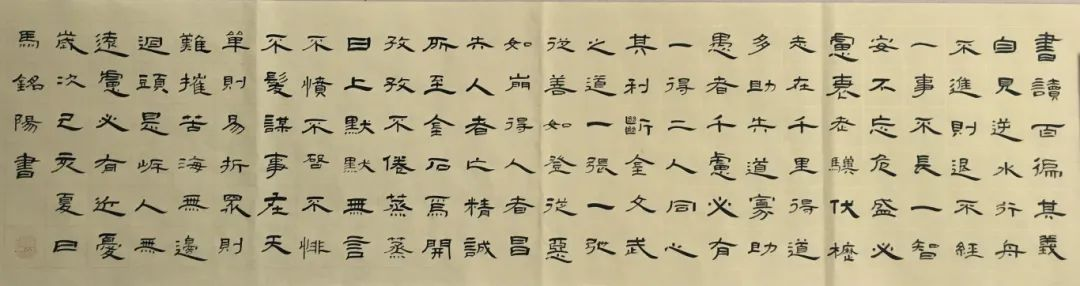 書讀百徧其義
自見逆水行舟
不進則退不經
一事不長一智
安不忘危盛必
慮衰老驥伏櫪
志在千里得道
多助失道寡助
愚者千慮必有
一得二人同心
其利斷金文武
之道一張一弛
從善如登從惡
如崩得人者昌
失人者亡精誠
所至金石爲開
孜孜不倦蒸蒸
日上默默無言
不憤不啓不悱
不髮謀事在天
單則易折眾則
難摧苦海無邊
迴頭是岸人無
遠慮必有近憂
歲次己亥夏日
馬銘陽書